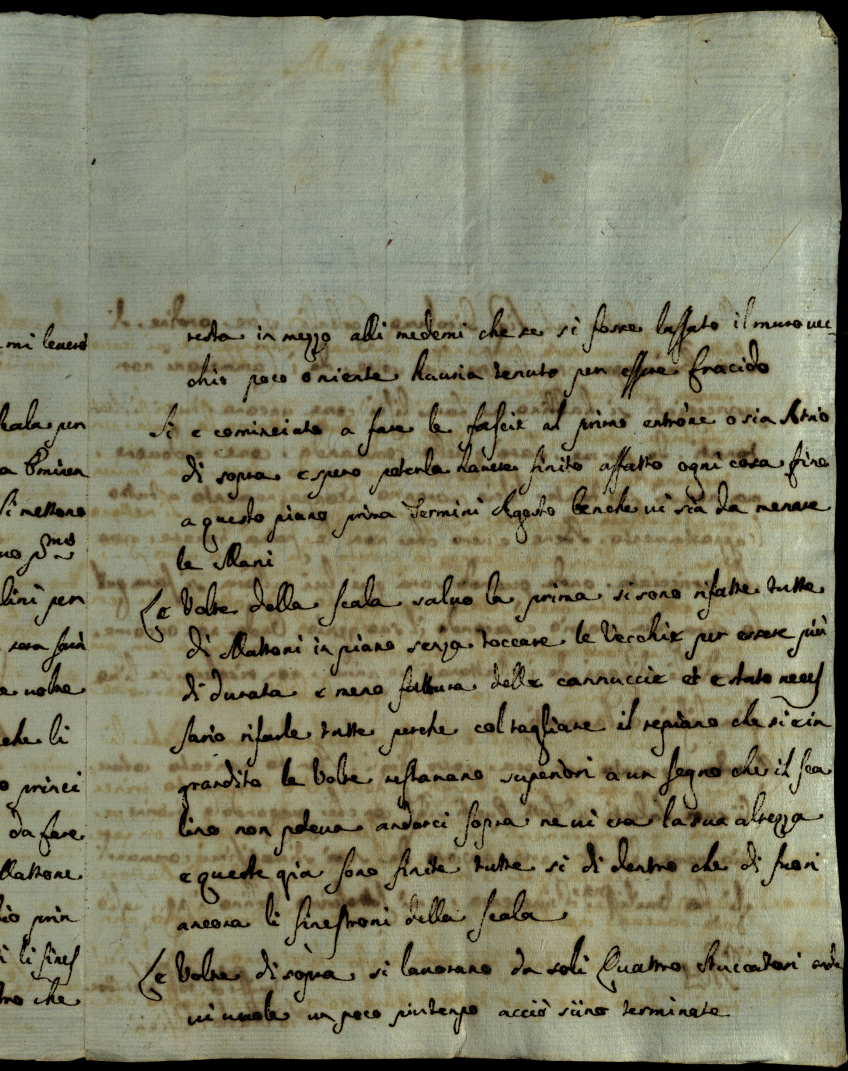 mi leuerò
scala per
Si mettono
no p.mo
lini per
sara fari
e uolte
che li
o princi
da fare
Mattone
io prin
i li fines
tro che
resta in mezzo alli medemi che se si fosse lassato il muro uec
chio poco o niente hauria tenuto per essere fracido
Si è cominciato a fare le fascie al primo entrone o sia Atrio
di sopra e spero poterla hauere finito affatto ogni cosa fino
a questo piano prima Termini Agosto benche ui sia da menare
le Mani
Le Volte della scala saluo la prima si sono rifatte tutte
di Mattoni in piano senza toccare le Vecchie per essere più
di durata e meno fattura delle cannuccie et è stato neces
sario rifarle tutte perche col tagliare il repiano che si è in
grandito le Volte restauano superiori a un segno che il sca
lino non poteua andarci sopra ne ui era la sua altezza
e queste già sono finite tutte si di dentro che di fuori
ancora li finestroni della scala
Le Volte di sopra si lauorano da soli Quattro Stuccatori onde
ui uuole un poco più tempo acciò siino terminate